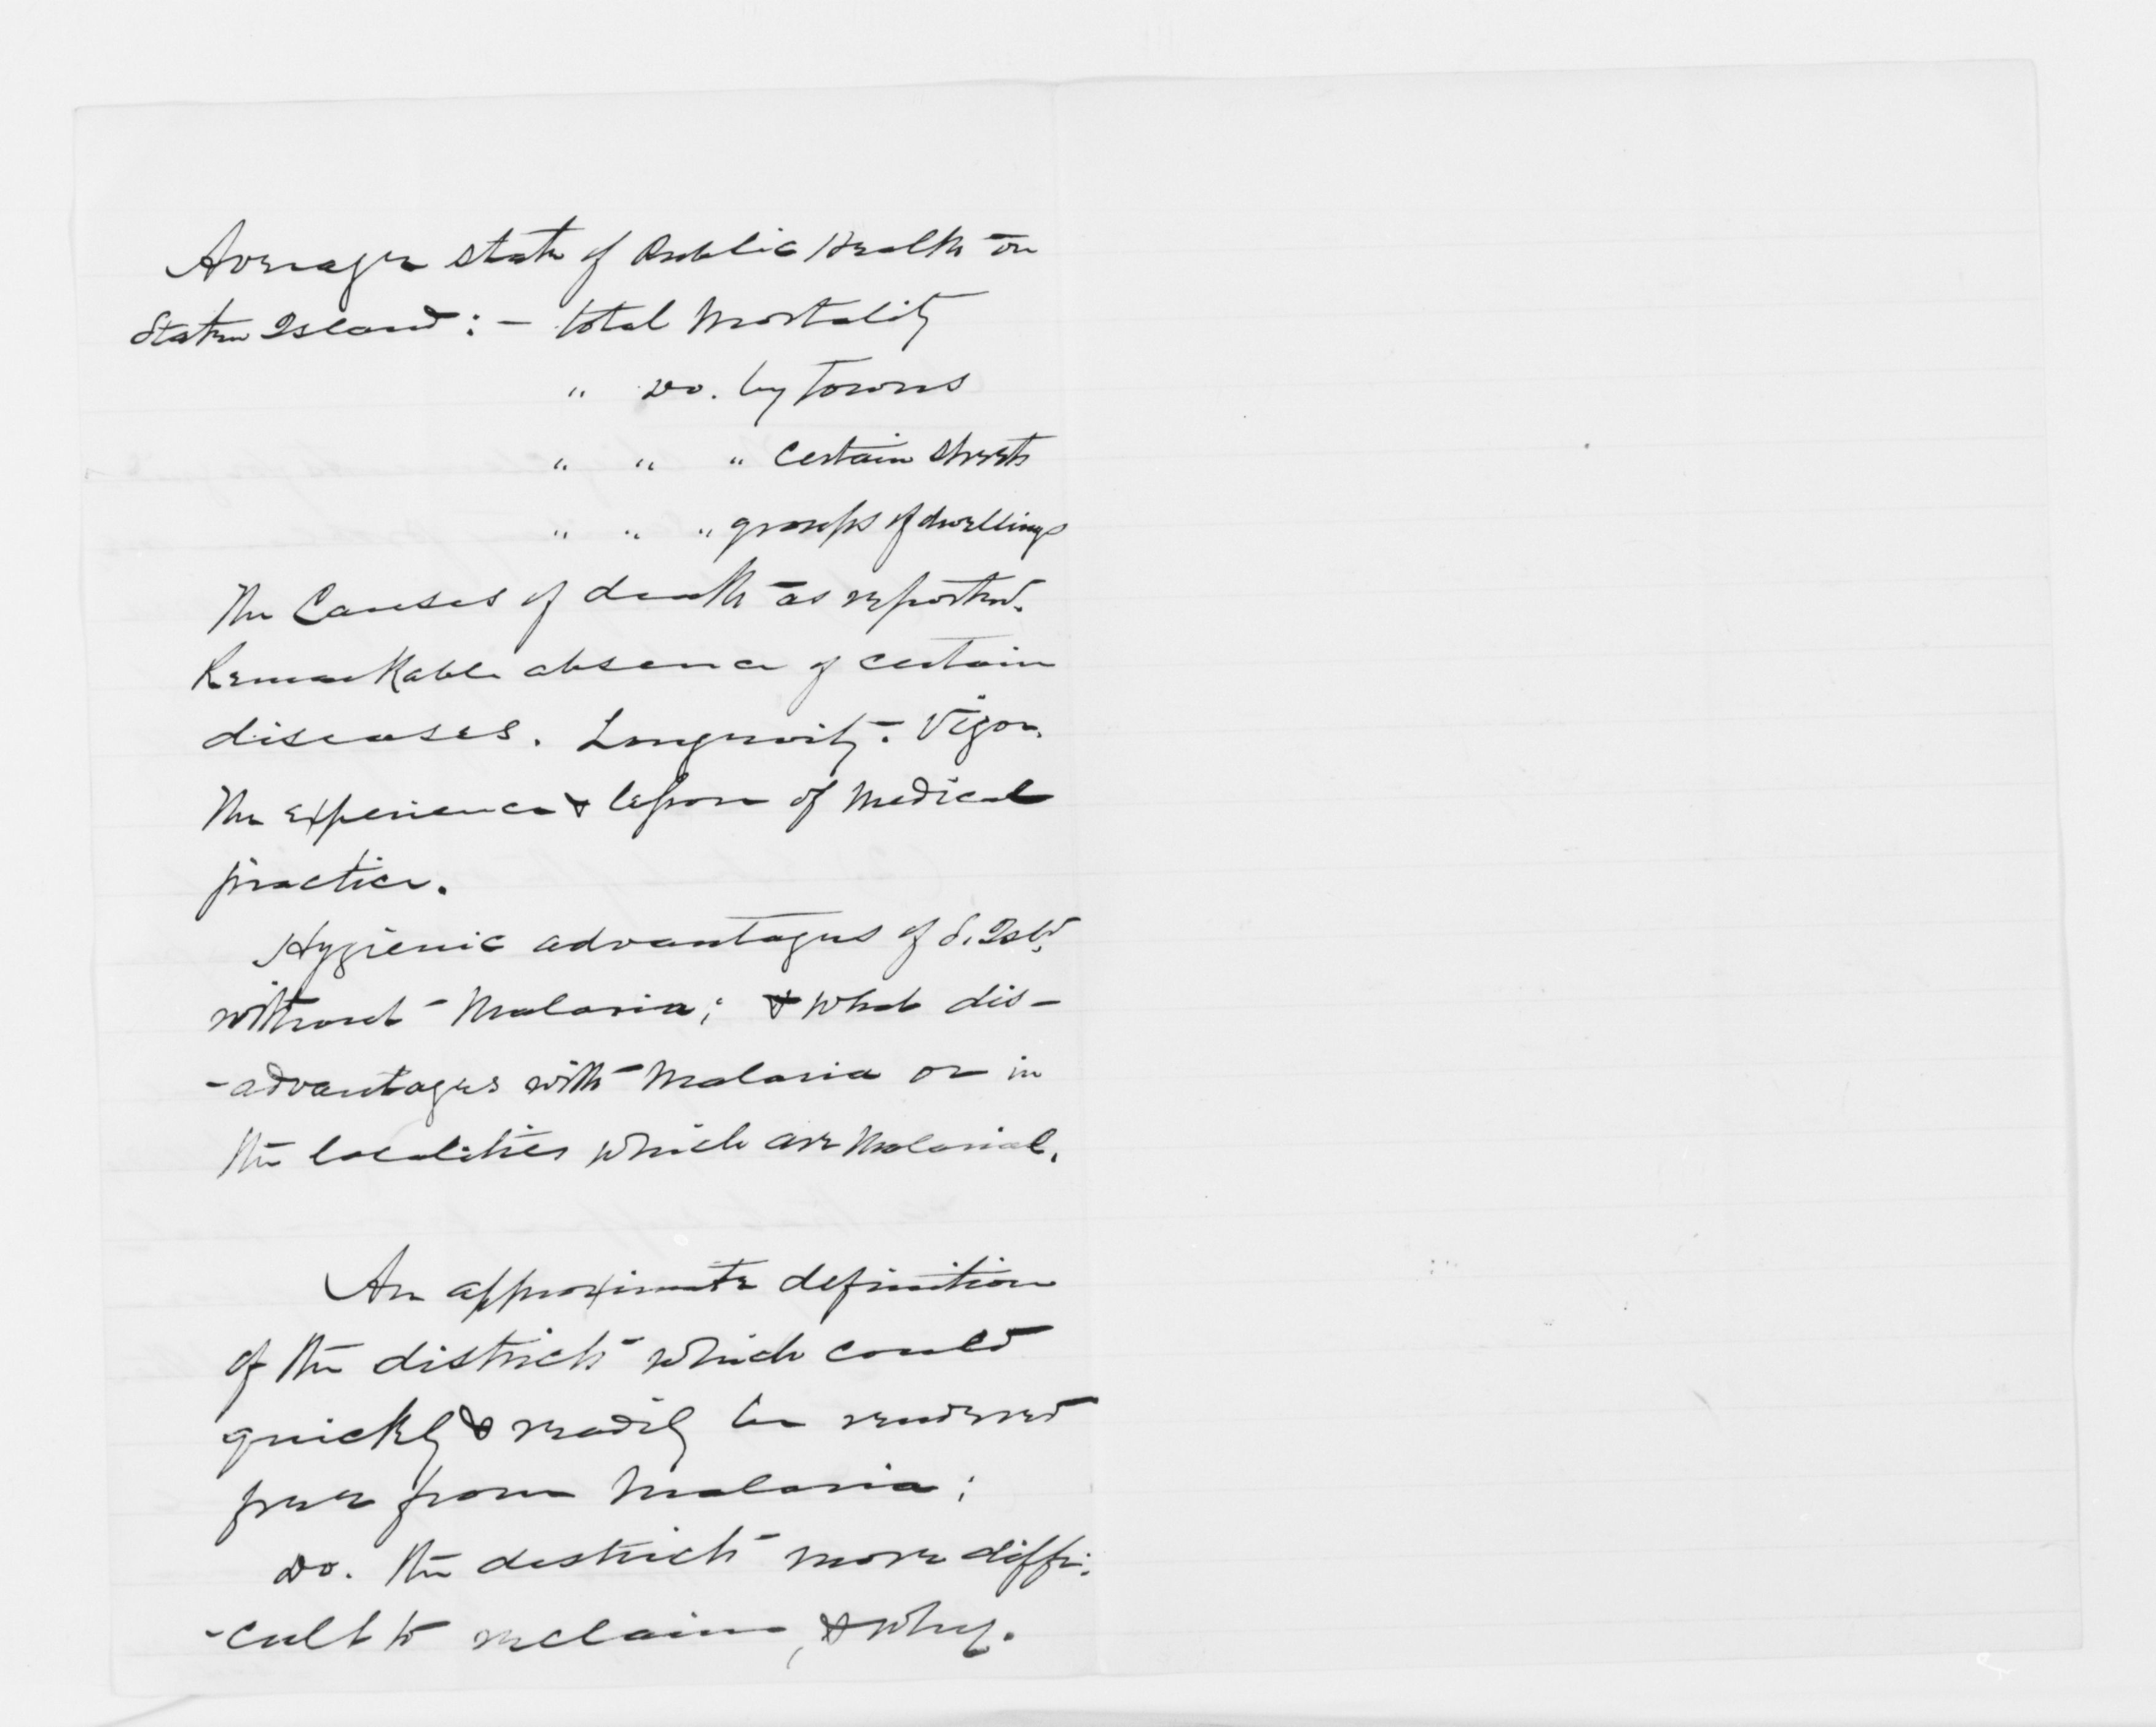 Average state of Public Health on
Staten Island: - total Mortality
" Do. by Towns
" " " Certain Streets
" " " groups of dwellings
The Causes of death as reported.
Remarkable absence of certain
diseases. Longevity. Vigor.
The experience & lesson of Medical
practice.
Hygienic advantages of S. Isld.
without Malaria; & what dis-
-advantages with Malaria or in
the localities which are Malarial.
An approximate definition
of the districts which could
quickly & readily be rendered
free from Malaria;
Do. the districts more diffi-
-cult to reclaim, & why.